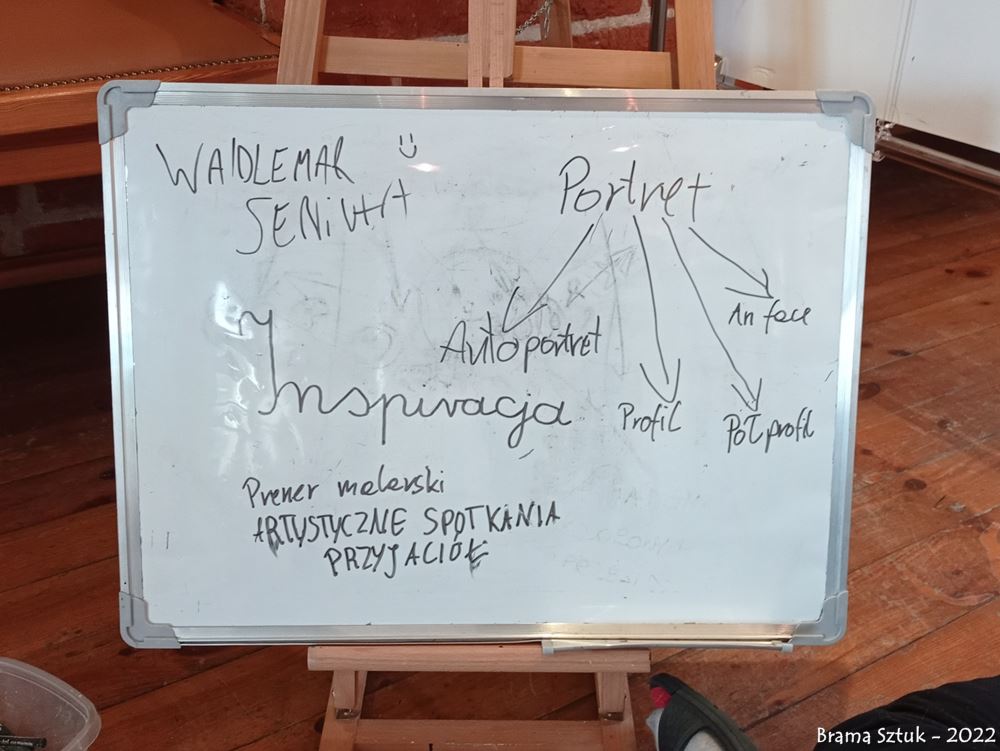 WALDLEMAR
Portret
Autoportret
An face
Profil
Półprofil
Inspiracja
Plener malarski
ARTYSTYCZNE SPOTKANIA
PRZYJACIÓŁ
Brama Sztuk - 2022